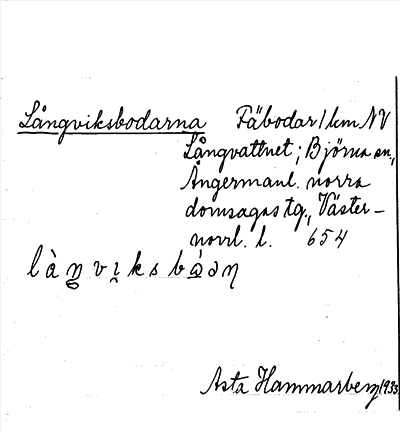 Långviksbodarna Fäbodar 1 km NV
Långvattnet; Björna sn.,
Ångermanl. norra
domsagas tg., Väster-
norrl. l. 654
Asta Hammarberg 1933